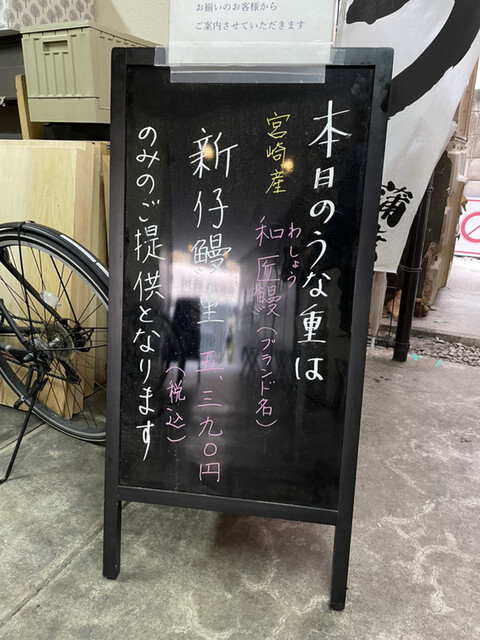 お揃いのお客様から
ご案内させていただきます
本日のうな重は
宮崎産 和匠鰻(ブランド名)
わしょう
新仔鰻重 五、三九〇円
(税込)
のみのご提供となります
う
蒲